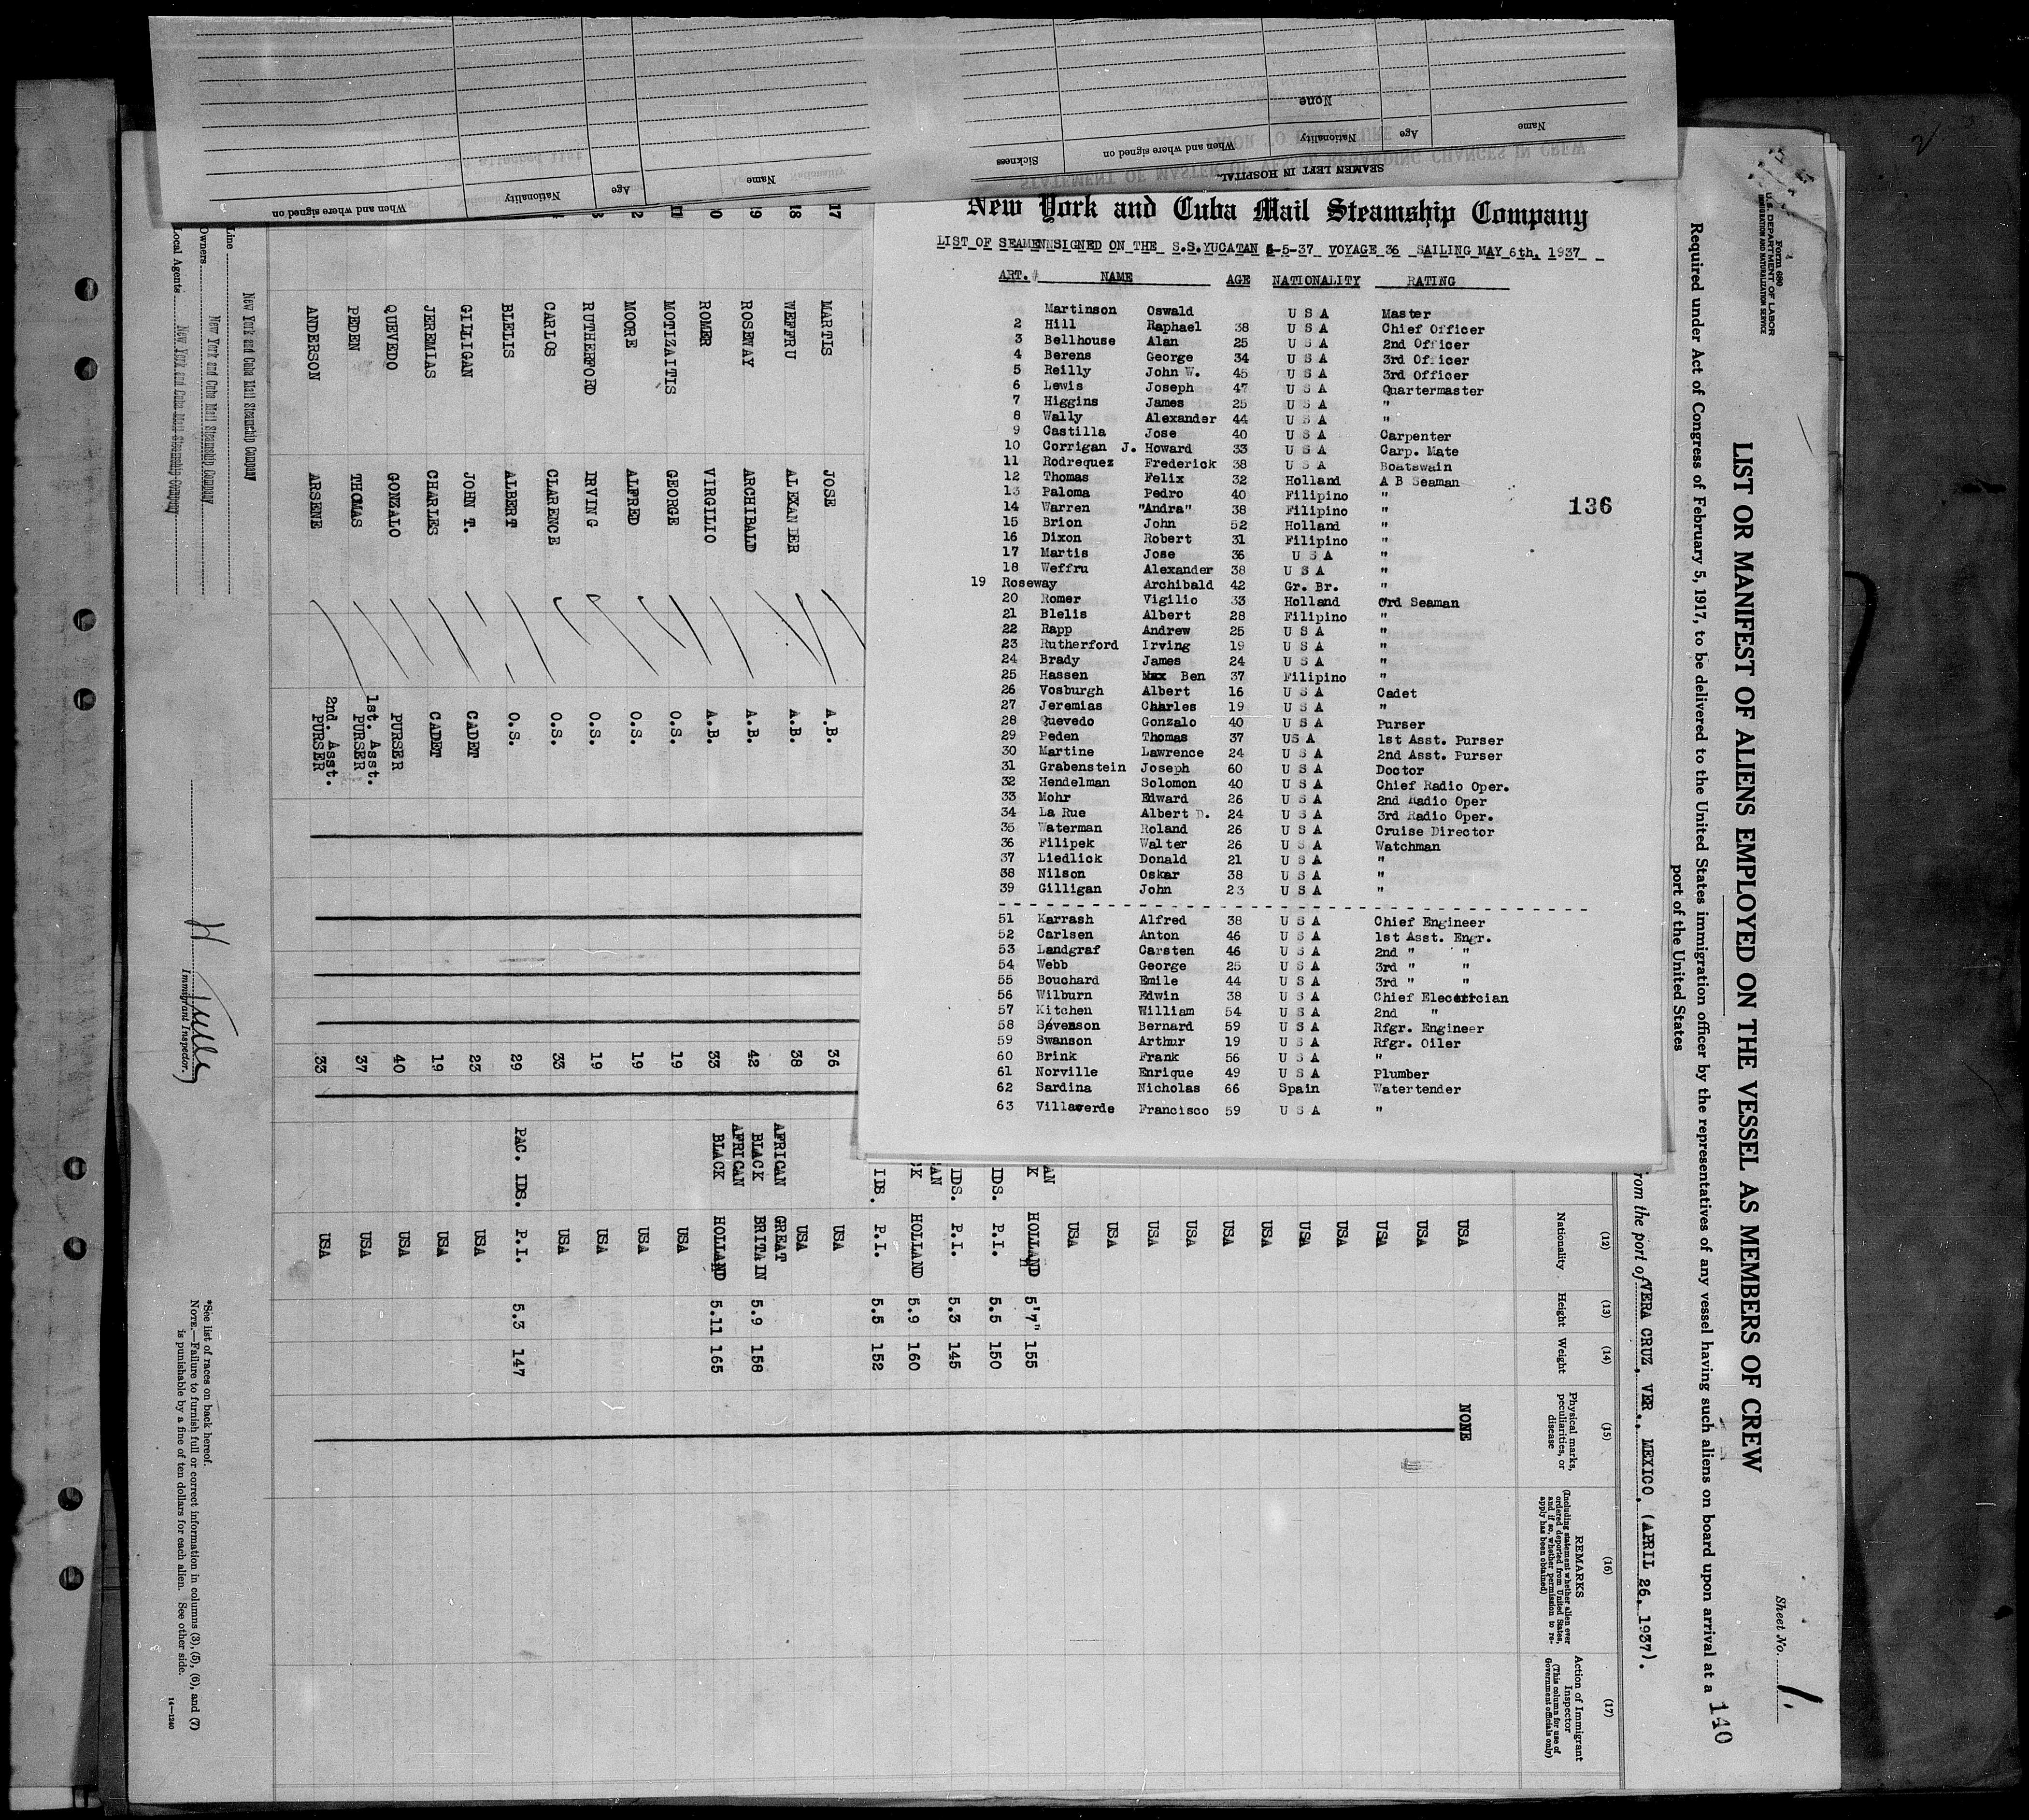 SEAMEN LEFT IN HOSPITAL
Name Age Nationality When and where signed on Sickness
None
Name Age Nationality When and where signed on
New York and Cuba Mail Steamship Company
LIST OF SEAMENNSIGNED ON THE S.S.YUCATAN 5-5-37 VOYAGE 36 SAILING MAY 6th, 1937
ART.# NAME AGE NATIONALITY RATING
Martinson Oswald U S A Master
2 Hill Raphael 38 U S A Chief Officer
3 Bellhouse Alan 25 U S A 2nd Officer
4 Berens George 34 U S A 3rd Officer
5 Reilly John W. 45 U S A 3rd Officer
6 Lewis Joseph 47 U S A Quartermaster
7 Higgins James 25 U S A "
8 Wally Alexander 44 U S A "
9 Castilla Jose 40 U S A Carpenter
10 Corrigan J. Howard 33 U S A Carp. Mate
11 Rodrequez Frederick 38 U S A Boatswain
12 Thomas Felix 32 Holland A B Seaman
13 Paloma Pedro 40 Filipino "
14 Warren "Andra" 38 Filipino "
15 Brion John 52 Holland "
16 Dixon Robert 31 Filipino "
17 Martis Jose 36 U S A "
18 Weffru Alexander 38 U S A "
19 Roseway Archibald 42 Gr. Br. "
20 Romer Vigilio 33 Holland Ord Seaman
21 Blelis Albert 28 Filipino "
22 Rapp Andrew 25 U S A "
23 Rutherford Irving 19 U S A "
24 Brady James 24 U S A "
25 Hassen Max Ben 37 Filipino "
26 Vosburgh Albert 16 U S A Cadet
27 Jeremias Charles 19 U S A "
28 Quevedo Gonzalo 40 U S A Purser
29 Peden Thomas 37 US A 1st Asst. Purser
30 Martine Lawrence 24 U S A 2nd Asst. Purser
31 Grabenstein Joseph 60 U S A Doctor
32 Hendelman Solomon 40 U S A Chief Radio Oper.
33 Mohr Edward 26 U S A 2nd Radio Oper
34 La Rue Albert D. 24 U S A 3rd Radio Oper.
35 Waterman Roland 26 U S A Cruise Director
36 Filipek Walter 26 U S A Watchman
37 Liedlick Donald 21 U S A "
38 Nilson Oskar 38 U S A "
39 Gilligan John 23 U S A "
51 Karrash Alfred 38 U S A Chief Engineer
52 Carlsen Anton 46 U S A 1st Asst. Engr.
53 Landgraf Carsten 46 U S A 2nd " "
54 Webb George 25 U S A 3rd " "
55 Bouchard Emile 44 U S A 3rd " "
56 Wilburn Edwin 38 U S A Chief Electrician
57 Kitchen William 54 U S A 2nd "
58 Sevenson Bernard 59 U S A Rfgr. Engineer
59 Swanson Arthur 19 U S A Rfgr. Oiler
60 Brink Frank 56 U S A "
61 Norville Enrique 49 U S A Plumber
62 Sardina Nicholas 66 Spain Watertender
63 Villaverde Francisco 59 U S A "
136
Form 680
U.S. DEPARTMENT OF LABOR
IMMIGRATION AND NATURALIZATION SERVICE
Sheet No. 1
LIST OR MANIFEST OF ALIENS EMPLOYED ON THE VESSEL AS MEMBERS OF CREW
140
Required under Act of Congress of February 5, 1917, to be delivered to the United States immigration officer by the representatives of any vessel having such aliens on board upon arrival at a
port of the United States
from the port of VERA CRUZ, VER., MEXICO. (APRIL 26, 1937).
(12) (13) (14) (15) (16) (17)
Nationality Height Weight Physical marks, peculiarities, or disease
REMARKS
(Including statement whether alien ever ordered deported from United States, and if so, whether permission to reapply has been obtained)
Action of Immigrant Inspector
(This column for use of Government officials only)
USA NONE
USA
USA
USA
USA
USA
USA
USA
USA
USA
USA
AN
K HOLLAND 5'7" 155
IDS. P.I. 5.5 150
IDS. P.I. 5.3 145
AN
CK HOLLAND 5.9 160
IDS. P.I. 5.5 152
17 MARTIS JOSE A.B. 36 USA
18 WEFFRU ALEXANDER A.B. 38 USA
19 ROSEWAY ARCHIBALD A.B. 42 AFRICAN BLACK GREAT BRITAIN 5.9 158
20 ROMER VIRGILIO A.B. 33 AFRICAN BLACK HOLLAND 5.11 165
MOTIZAITIS GEORGE O.S. 19 USA
MOORE ALFRED O.S. 19 USA
RUTHERFORD IRVING O.S. 19 USA
CARLOS CLARENCE O.S. 33 USA
BLELIS ALBERT O.S. 29 PAC. IDS. P.I. 5.3 147
GILLIGAN JOHN T. CADET 23 USA
JEREMIAS CHARLES CADET 19 USA
QUEVEDO GONZALO PURSER 40 USA
PEDEN THOMAS 1st. Asst. PURSER 37 USA
ANDERSON ARSENE 2nd. Asst. PURSER 33 USA
Line New York and Cuba Mail Steamship Company
Owners New York and Cuba Mail Steamship Company
Local Agents New York and Cuba Mail Steamship Company
Immigrant Inspector.
*See list of races on back hereof.
NOTE.—Failure to furnish full or correct information in columns (3), (5), (6), and (7)
is punishable by a fine of ten dollars for each alien. See other side.
14—1240